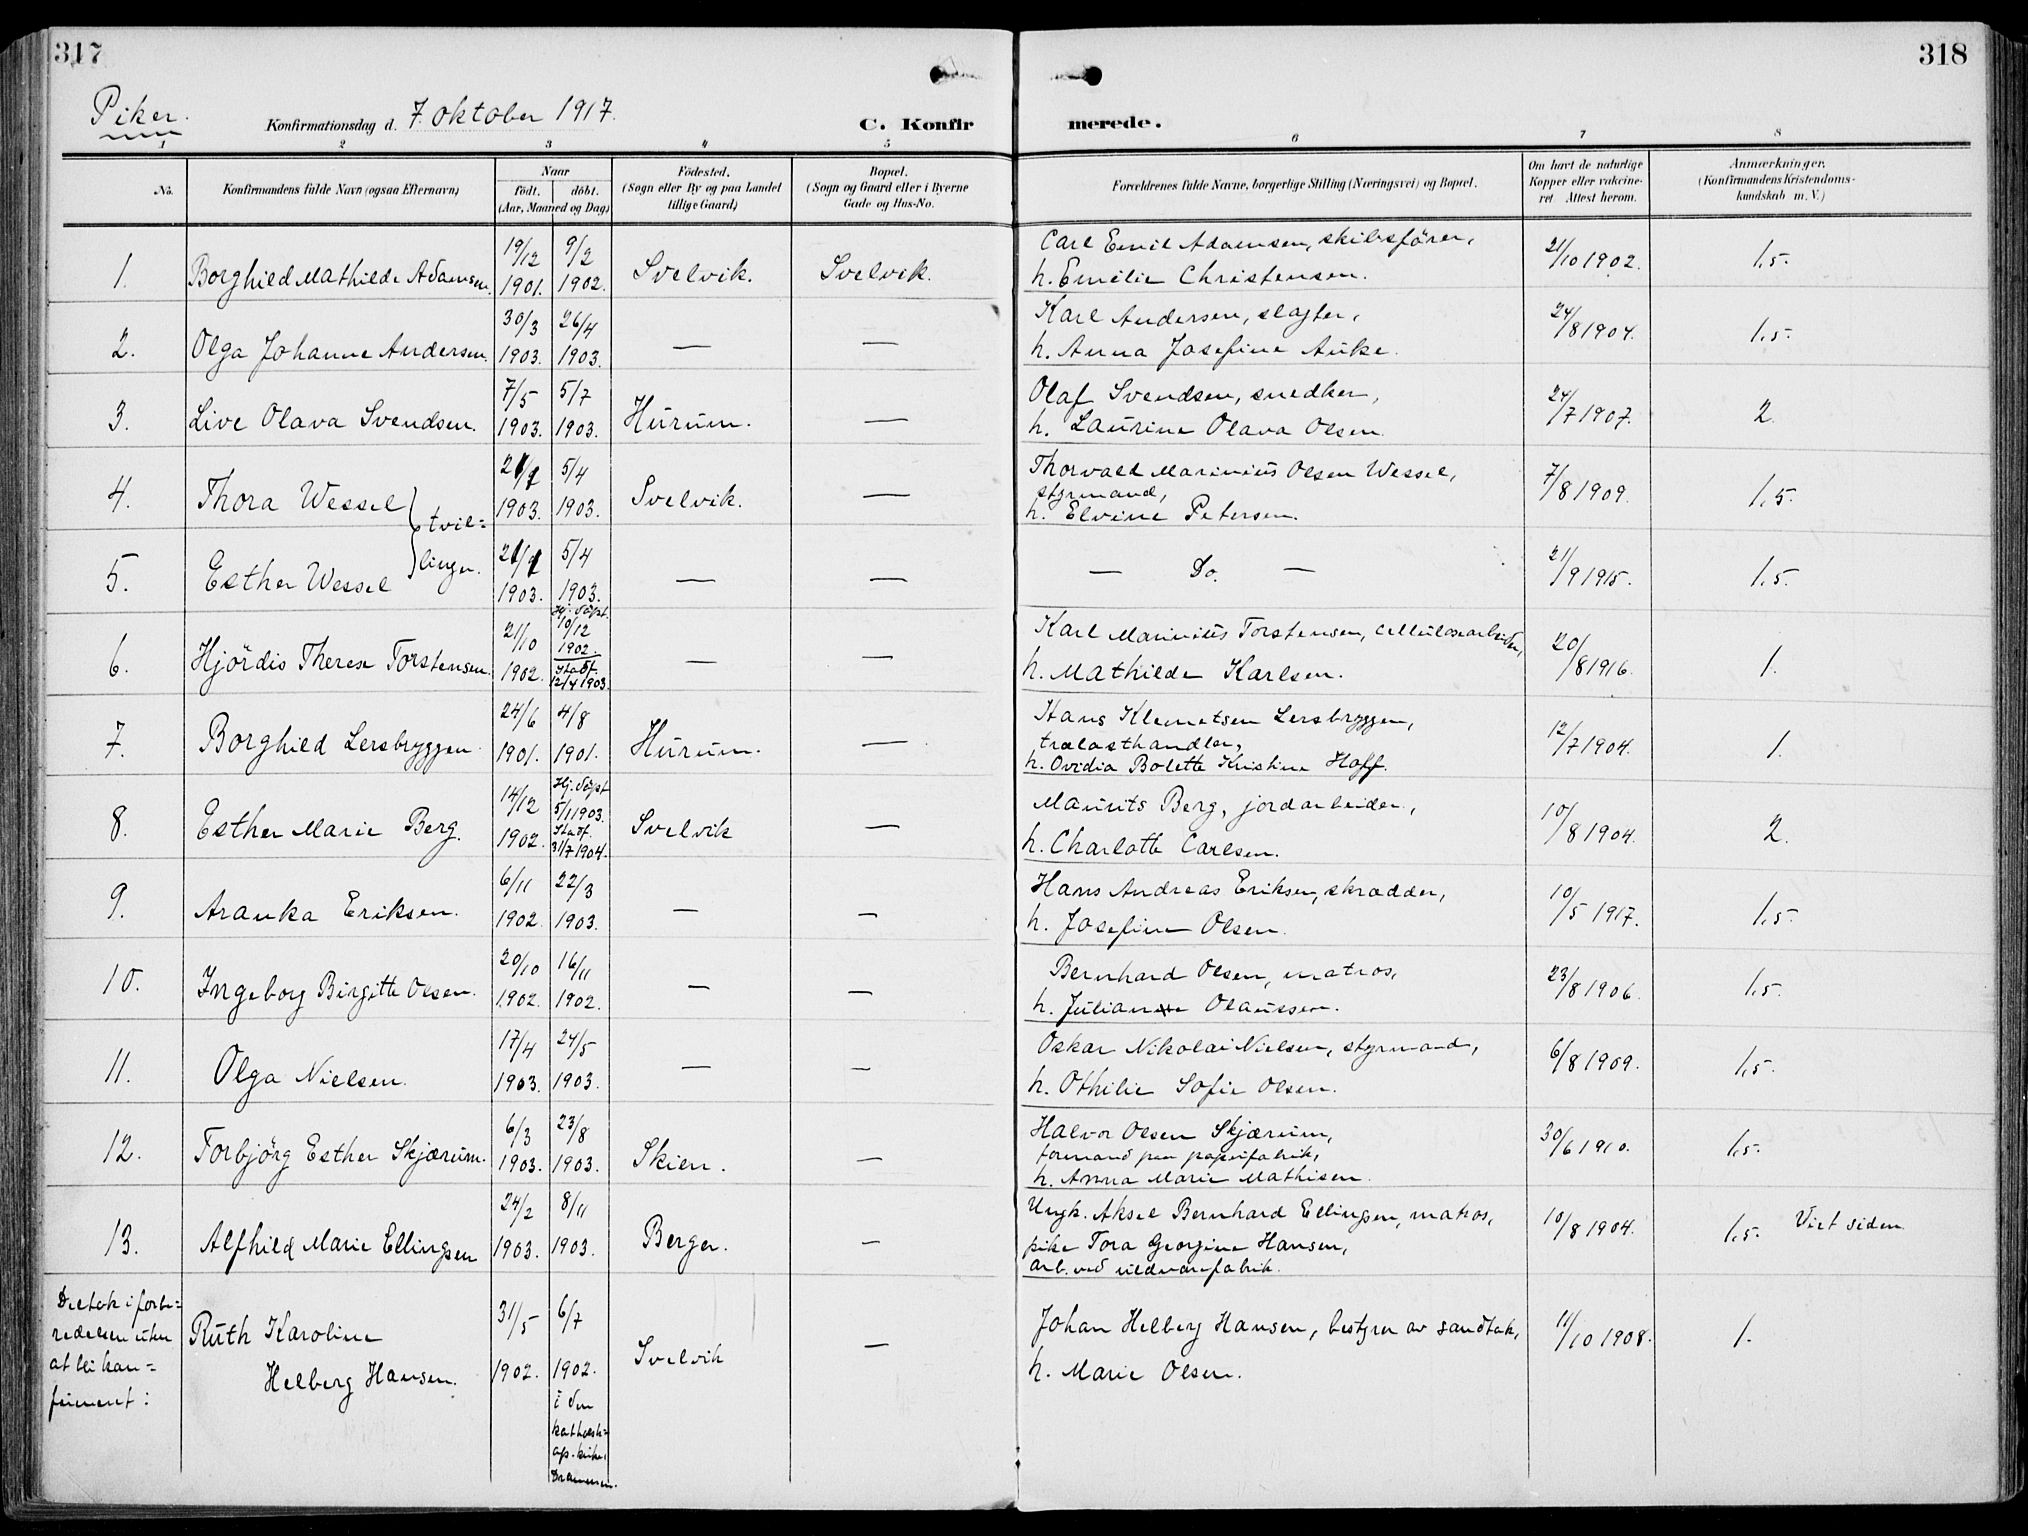 317
318
Piker.
Konfirmationsdag d. 7. oktober 1917.
C. Konfir
merede.
1 2 3 4 5 6 7 8
No.
Konfirmandens fulde Navn (ogsaa Efternavn)
Naar
födt. döbt.
(Aar, Maaned og Dag)
Födested.
(Sogn eller By og paa Landet
tillige Gaard)
Bopæl.
(Sogn og Gaard eller i Byerne
Gade og Hus-No.
Forældrenes fulde Navne, borgerlige Stilling (Næringsvei) og Bopæl.
Om havt de naturlige
Kopper eller vakcine-
ret. Attest herom.
Anmærkninger.
(Konfirmandens Kristendoms-
kundskab m. V.)
1. Borghild Mathilde Adamsen. 19/12 1901. 9/2 1902. Svelvik. Svelvik.
Carl Emil Adamsen, skibsförer,
h. Emilie Christensen.
21/10 1902. 1,5.
2. Olga Johanne Andersen. 30/3 1903. 26/4 1903. — —
Karl Andersen, slagter,
h. Anna Josefine Anke.
24/8 1904. 1,5.
3. Live Olava Svendsen. 7/5 1903. 5/7 1903. Hurum. —
Olaf Svendsen, snedker,
h. Laurine Olava Olsen.
24/7 1907. 2.
4. Thora Wessel } tvil= 1903. 5/4 1903. Svelvik. —
Thorvald Marinius Olsen Wessel,
styrmand,
h. Elvine Petersen.
7/8 1909. 1,5.
5. Esther Wessel } linger. 1903. 5/4 1903. — —
— Do. —
21/9 1915. 1,5.
6. Hjördis Therese Torstensen. 21/10 1902. Hj. döpt. 10/12 1902. Stadf. 12/4 1903. — —
Karl Marinius Torstensen, cellulosearbeider,
h. Mathilde Karlsen.
20/8 1916. 1.
7. Borghild Lersbryggen. 24/6 1901. 4/8 1901. Hurum. —
Hans Klemetsen Lersbryggen,
trælasthandler,
h. Ovidia Bolette Kristine Hoff.
12/7 1904. 1.
8. Esther Marie Berg. 14/12 1902. Hj. döpt 5/1 1903. Stadf. 31/7 1904. Svelvik —
Maurits Berg, jordarbeider,
h. Charlotte Carlsen.
10/8 1904. 2.
9. Aranka Eriksen. 6/11 1902. 22/3 1903. — —
Hans Andreas Eriksen, skrædder,
h. Josefine Olsen.
10/5 1917. 1,5.
10. Ingeborg Birgitte Olsen. 20/10 1902. 16/11 1902. — —
Bernhard Olsen, matros,
h. Juliane Olaussen.
23/8 1906. 1,5.
11. Olga Nielsen. 17/4 1903. 24/5 1903. — —
Oskar Nikolai Nielsen, styrmand,
h. Othilie Sofie Olsen.
6/8 1909. 1,5.
12. Torbjörg Esther Skjærum. 6/3 1903. 23/8 1903. Skien. —
Halvor Olsen Skjærum,
formand paa papirfabrik,
h. Anna Marie Mathisen.
30/6 1910. 1,5.
13. Alfhild Marie Ellingsen 24/2 1903. 8/11 1903. Berger. —
Ungk. Aksel Bernhard Ellingsen, matros,
pike Tora Georgine Hansen,
arb. ved uldvarefabrik.
10/8 1904. 1,5. Viet siden
Deltok i forbe=
redelsen uten
at bli kon=
firmert:
Ruth Karoline
Helberg Hansen. 31/5 1902. 6/7 1902.
i den
kathols=
ap. kirke,
Drammen.
Svelvik —
Johan Helberg Hansen, bestyrer av sandtak,
h. Marie Olsen.
11/10 1908. 1.